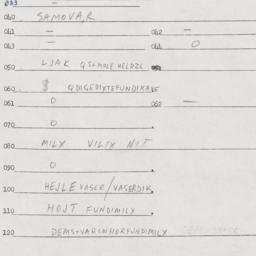 033 —
040 SAMOVA,R
041 — 042 —
043 — 044 O
050 LJAK
060 $ QDIGEDIXTEFUNDIKAVE
061 O 062 —
070 O
080 MILX VILIX NIT
090 O
100 HEJLE VASER/VASERDIK
110 HOJT FUNDIMILX
120 DEMSTVARINHORFUNDIMILX